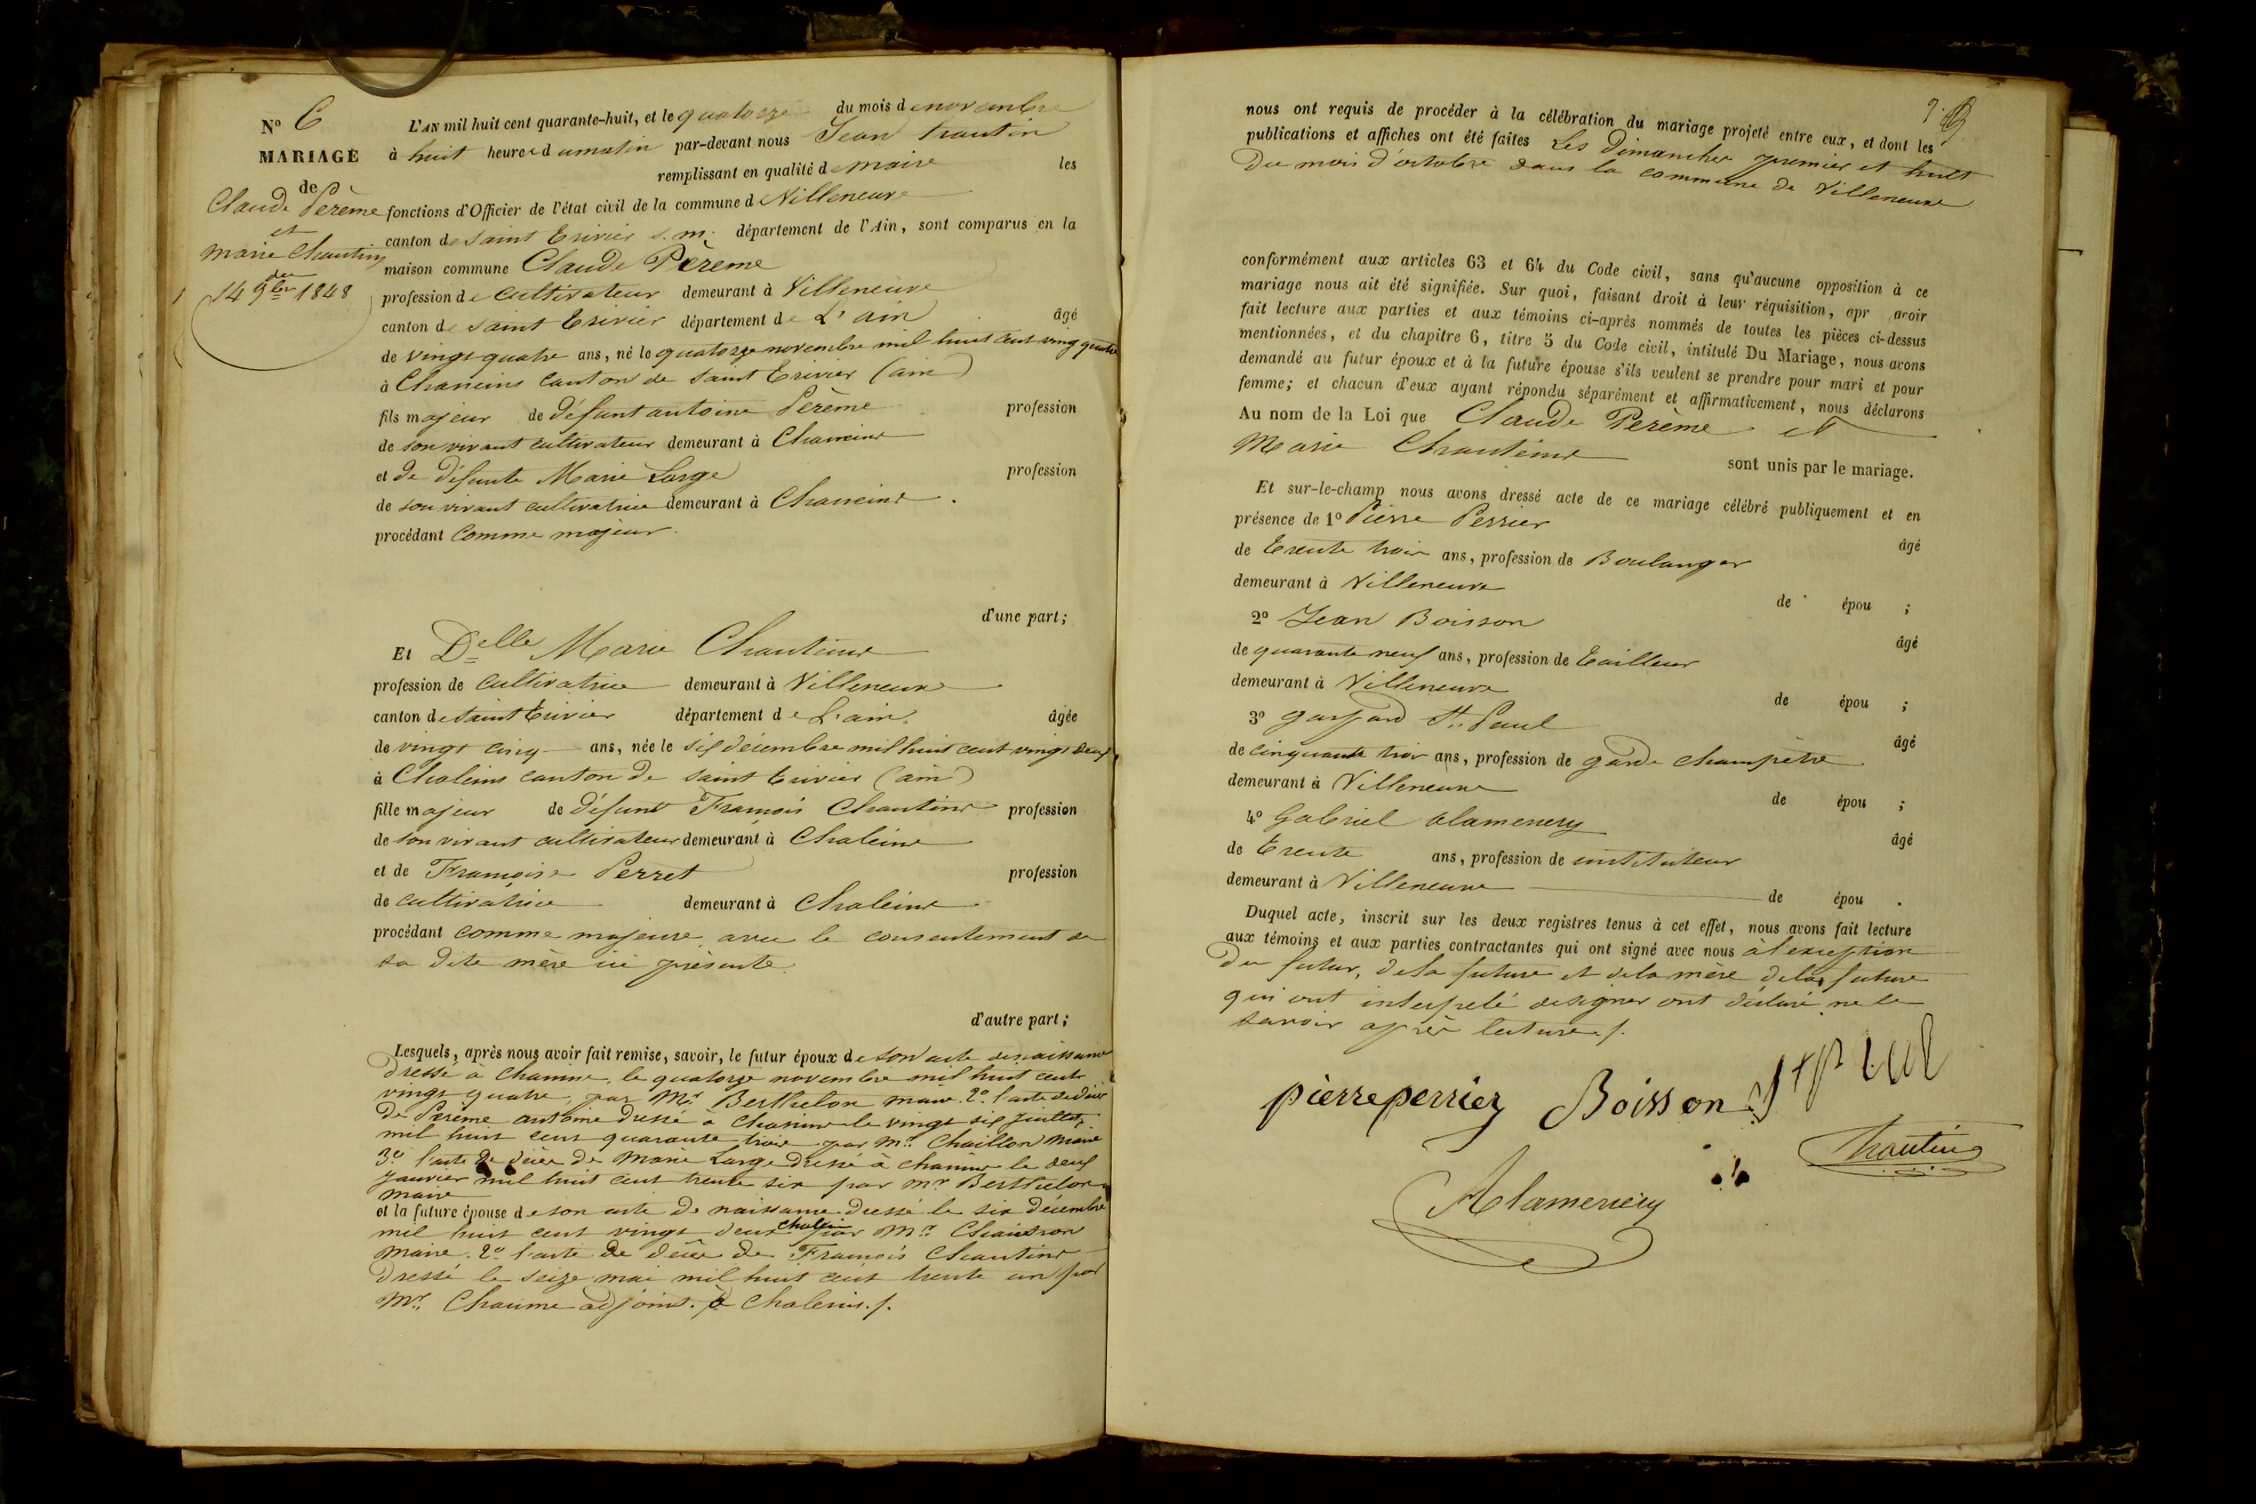 N° 6
MARIAGE
de
Claude Perème
et
marie Chantin
du
14 9bre 1848
L'AN mil huit cent quarante-huit, et le quatorze du mois de novembre
à huit heures du matin par-devant nous Jean trautin
remplissant en qualité de maire les
fonctions d'Officier de l'état civil de la commune d Villeneuve
canton de saint Trivier s. m. département de l'Ain, sont comparus en la
maison commune Claude Perème
profession de cultivateur demeurant à Villeneuve
canton de saint Trivier département de L'ain âgé
de vingt quatre ans, né le quatorze novembre mil huit cent vingt quatre
à Chaneins canton de saint Trivier (ain)
fils majeur de défunt antoine Perème profession
de son vivant cultivateur demeurant à Chaneins
et de défunte Marie Large profession
de son vivant cultivatrice demeurant à Chaneins.
procédant comme majeur.
d'une part;
Et Delle Marie Chantin
profession de cultivatrice demeurant à Villeneuve
canton de saint Trivier département de L'ain. âgée
de vingt cinq ans, née le six décembre mil huit cent vingt deux
à Chaleins canton de saint Trivier (ain)
fille majeur de défunt François Chantin profession
de son vivant cultivateur demeurant à Chaleins
et de Françoise Perret profession
de cultivatrice demeurant à Chaleins
procédant comme majeure avec le consentement de
sa dite mère ici présente.
d'autre part;
Lesquels, après nous avoir fait remise, savoir, le futur époux de son acte de naissance
dressé à chaneins, le quatorze novembre mil huit cent
vingt quatre, par Mr Berthelon maire. 2° l'acte de décès
de Perème antoine dressé à chaneins le vingt six juillet
mil huit cent quarante trois par mr. Chaillon Maire
3° l'acte de décès de Marie Large dressé à chaneins le deux
janvier mil huit cent trente six par mr Berthelon
maire
et la future épouse de son acte de naissance dressé le six décembre
mil huit cent vingt deux chaleins par Mr.
maire. 2° l'acte de décès de François Chantin
dressé le seize mai mil huit cent trente un par
Mr. Chaume adjoint. à chaleins./.
nous ont requis de procéder à la célébration du mariage projeté entre eux, et dont les
publications et affiches ont été faites Les Dimanches premier et huit
Du mois d'octobre dans la commune de Villeneuve
conformément aux articles 63 et 64 du Code civil, sans qu'aucune opposition à ce
mariage nous ait été signifiée. Sur quoi, faisant droit à leur réquisition, apr avoir
fait lecture aux parties et aux témoins ci-après nommés de toutes les pièces ci-dessus
mentionnées, et du chapitre 6, titre 5 du Code civil, intitulé Du Mariage, nous avons
demandé au futur époux et à la future épouse s'ils veulent se prendre pour mari et pour
femme; et chacun d'eux ayant répondu séparément et affirmativement, nous déclarons
Au nom de la Loi que Claude Perème et
Marie Chantin sont unis par le mariage.
Et sur-le-champ nous avons dressé acte de ce mariage célébré publiquement et en
présence de 1° Pierre Perrier
âgé
de Trente trois ans, profession de Boulanger
demeurant à Villeneuve
de épou ;
2° Jean Boisson
âgé
de quarante neuf ans, profession de Tailleur
demeurant à Villeneuve
de épou ;
3° gaspard St. Paul
âgé
de cinquante trois ans, profession de garde champêtre
demeurant à Villeneuve
de épou ;
4° Gabriel alamercery
âgé
de Trente ans, profession de instituteur
demeurant à Villeneuve
de épou .
Duquel acte, inscrit sur les deux registres tenus à cet effet, nous avons fait lecture
aux témoins et aux parties contractantes qui ont signé avec nous à l'exception
Du futur, de la future et de la mère de la future
qui ont interpelé de signer ont déclaré ne le
savoir après lecture./.
pierreperrier Boisson St paul
trautin
Alamercery